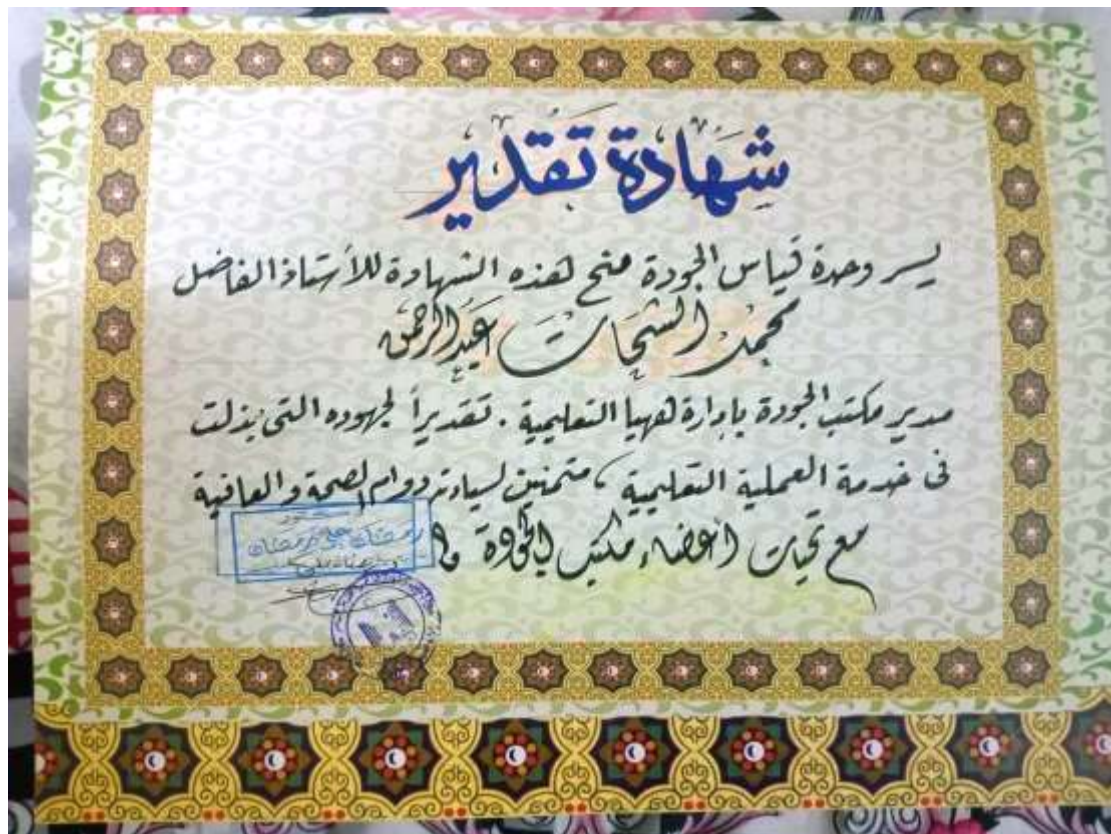 شهادة تقدير
يسر وحدة قياس الجودة منح هذه الشهادة للأستاذ الفاضل
محمد الشحات عبدالرحمن
مدير مكتب الجودة بإدارة ههيا التعليمية . تقديراً لجهوده التى بذلت
فى خدمة العملية التعليمية ، متمنين لسيادته دوام الصحة والعافية
مع تحيات أعضاء مكتب الجودة
رمضان على رمضان